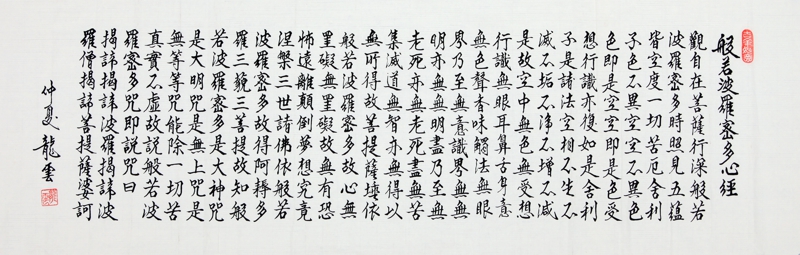 般若波羅密多心經
觀自在菩薩行深般若
波羅密多時照見五蘊
皆空度一切苦厄舍利
子色不異空空不異色
色即是空空即是色受
想行識亦復如是舍利
子是諸法空相不生不
滅不垢不淨不增不減
是故空中無色無受想
行識無眼耳鼻舌身意
無色聲香味觸法無眼
界乃至無意識界無無
明亦無無明盡乃至無
老死亦無老死盡無苦
集滅道無智亦無得以
無所得故菩提薩埵依
般若波羅密多故心無
罣礙無罣礙故無有恐
怖遠離顛倒夢想究竟
涅槃三世諸佛依般若
波羅密多故得阿耨多
羅三藐三菩提故知般
若波羅密多是大神咒
是大明咒是無上咒是
無等等咒能除一切苦
真實不虛故說般若波
羅密多咒即說咒曰
揭諦揭諦波羅揭諦波
羅僧揭諦菩提薩婆訶
仲夏龍雲